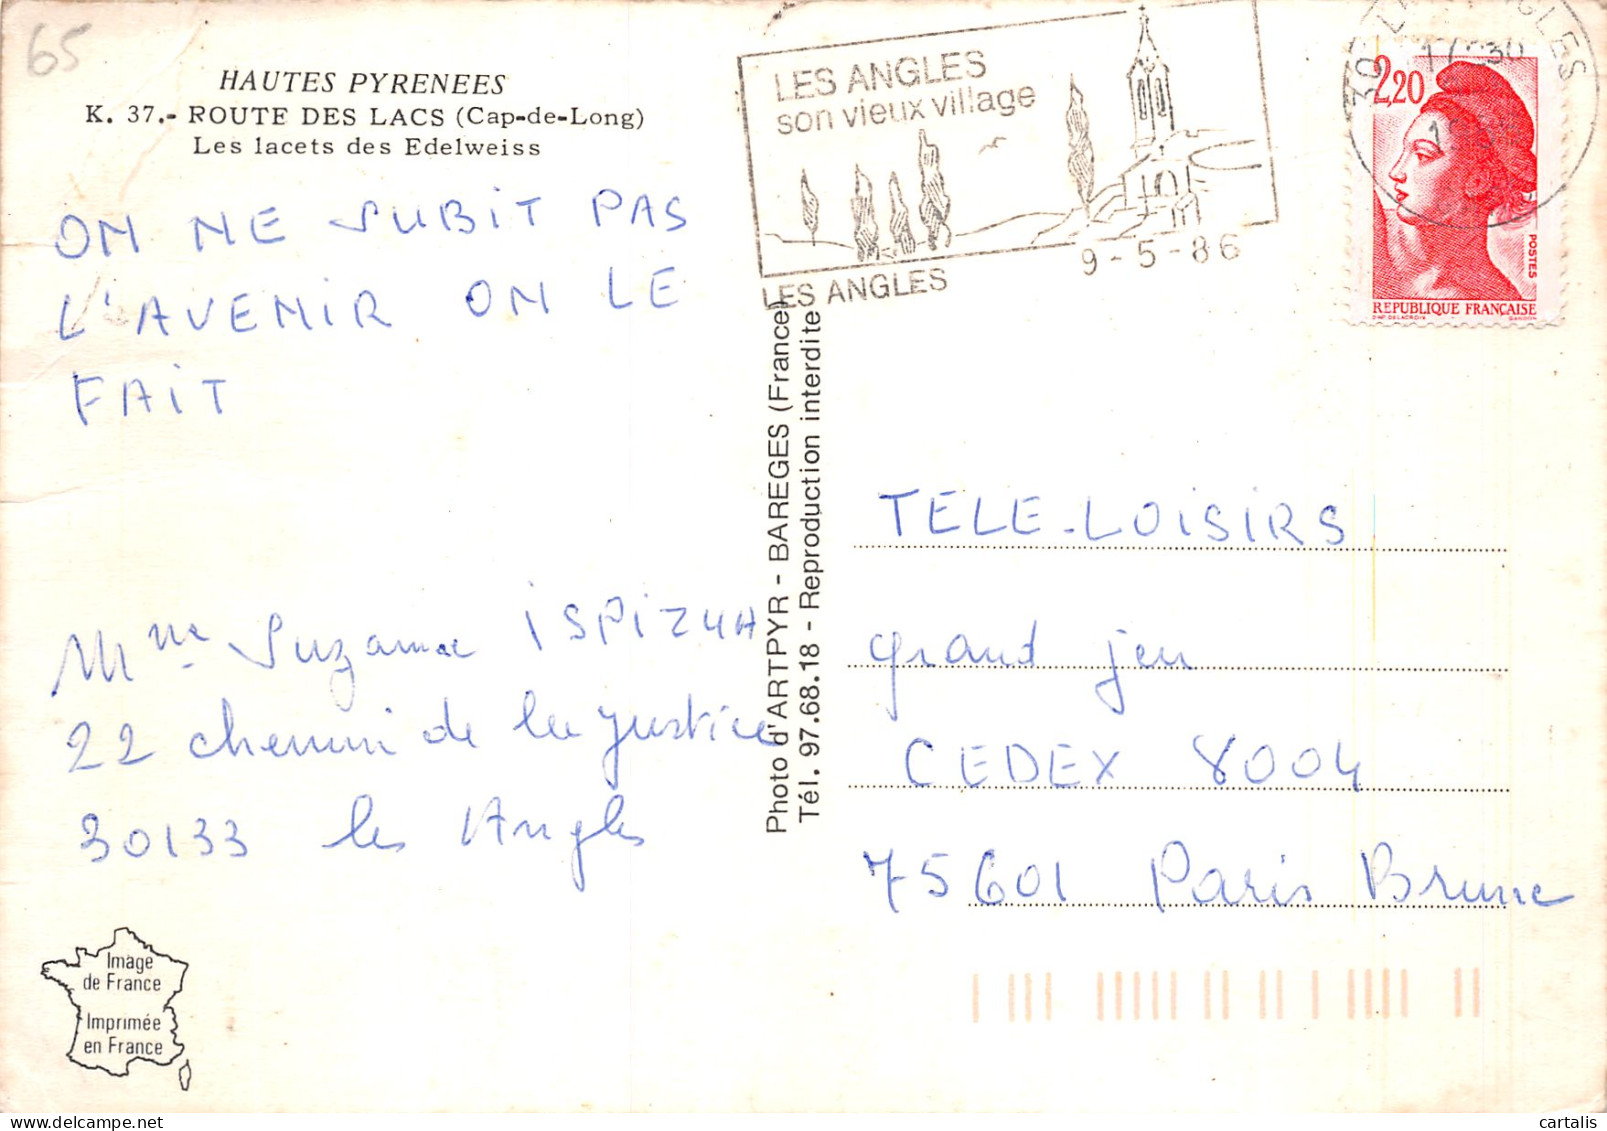 65
HAUTES PYRENEES
K. 37.- ROUTE DES LACS (Cap-de-Long)
Les lacets des Edelweiss
ON NE SUBIT PAS
L'AVENIR ON LE
FAIT
Mme Suzanne ISPIZUA
22 chemin de la justice
30133 les Angles
Image
de France
Imprimée
en France
Photo d'ARTPYR - BAREGES (France)
Tél. 97.68.18 - Reproduction interdite
LES ANGLES
son vieux village
LES ANGLES
9-5-86
30 LES ANGLES
2,20
POSTES
REPUBLIQUE FRANÇAISE
D'AP. DELACROIX GANDON
TELE-LOISIRS
grand jeu
CEDEX 8004
75601 Paris Brune
cartalis